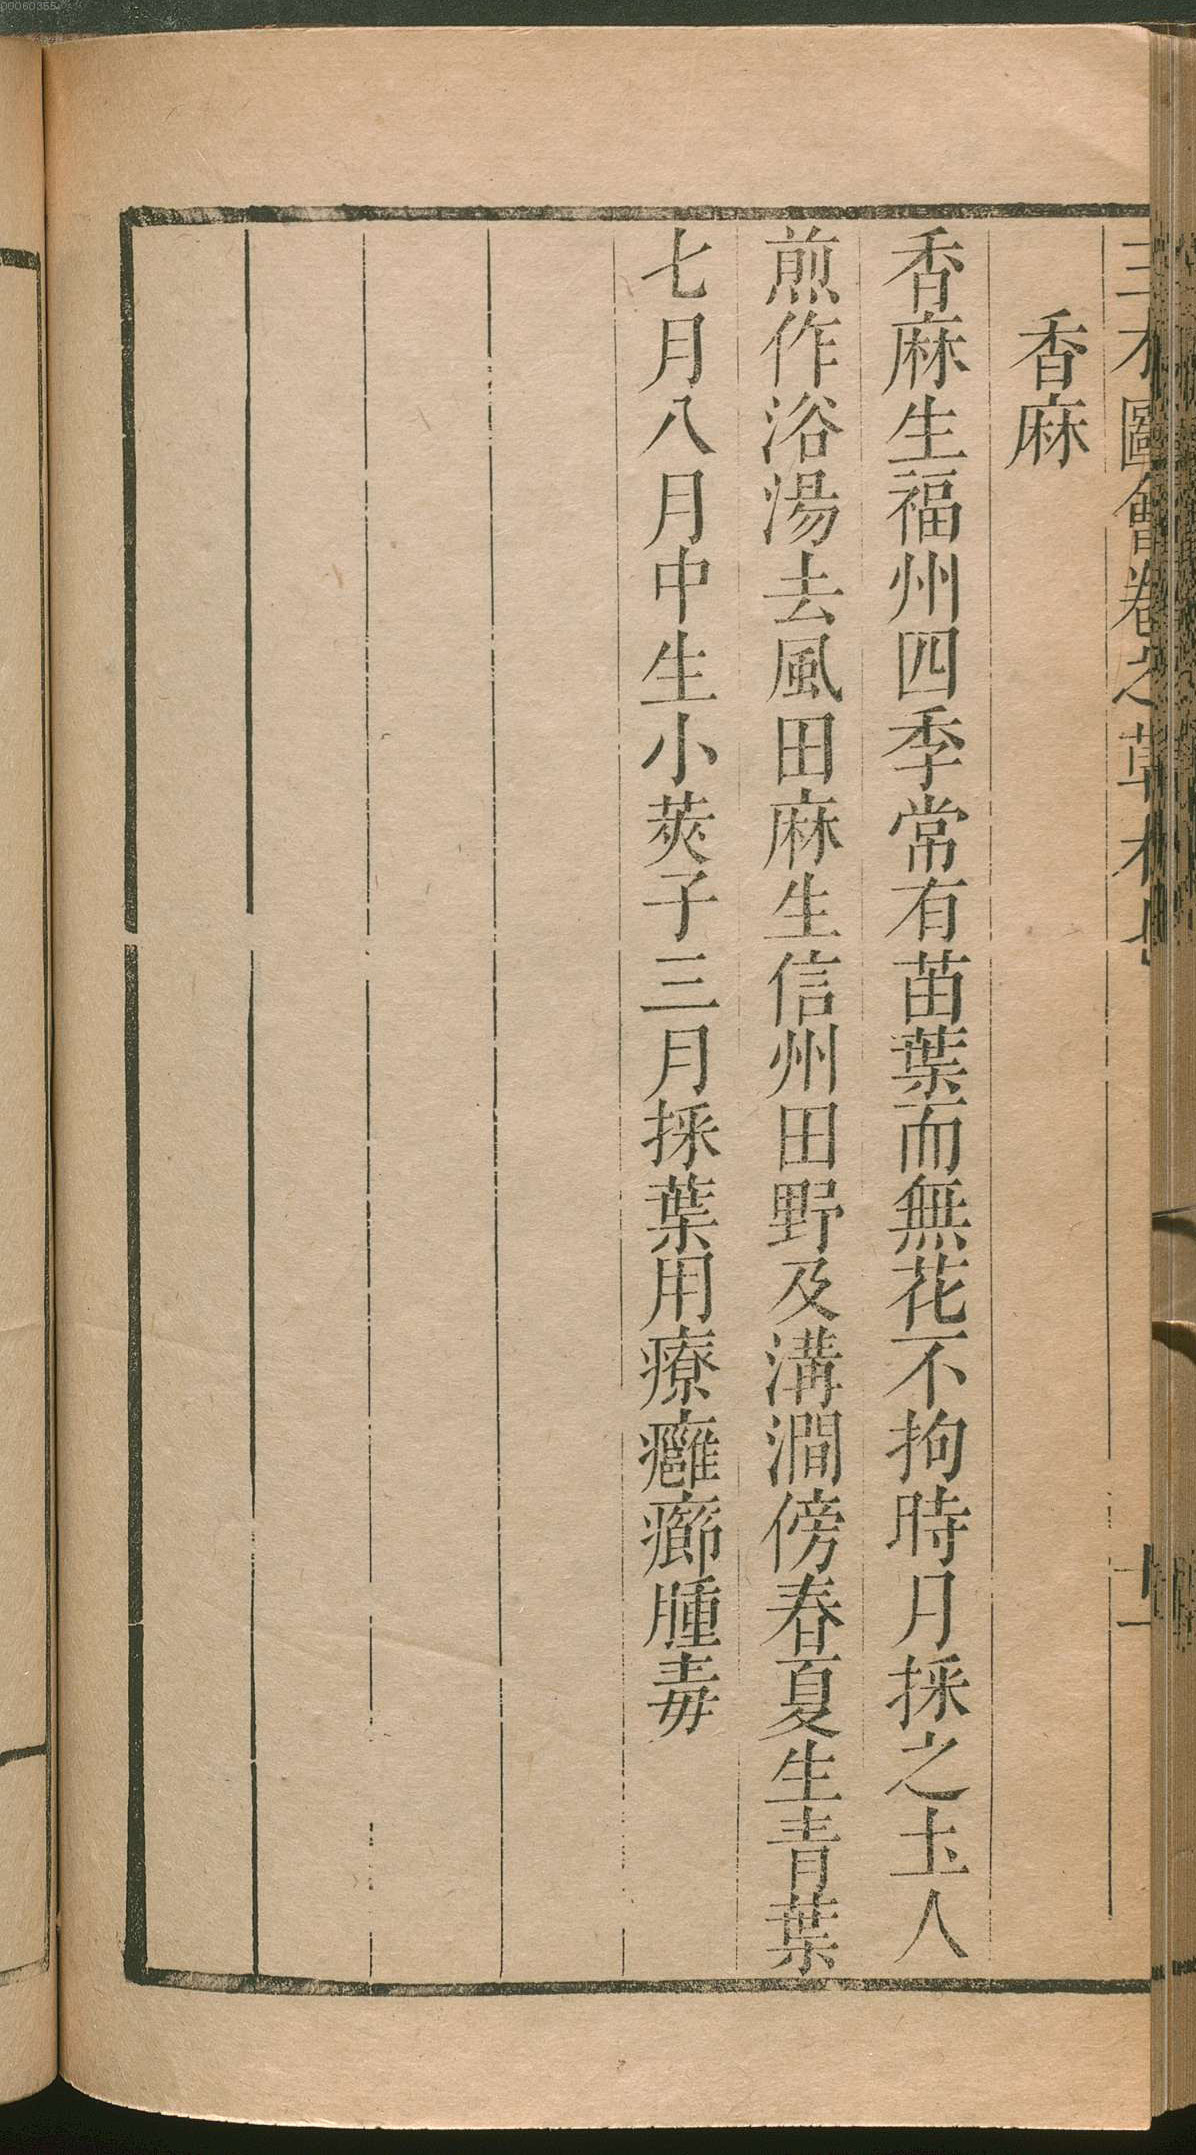 三才圖會卷之草木七
十一
香麻
香麻生福州四季常有苗葉而無花不拘時月採之土人
煎作浴湯去風田麻生信州田野及溝澗傍春夏生青葉
七月八月中生小莢子三月採葉用療癰癤腫毒
00060355